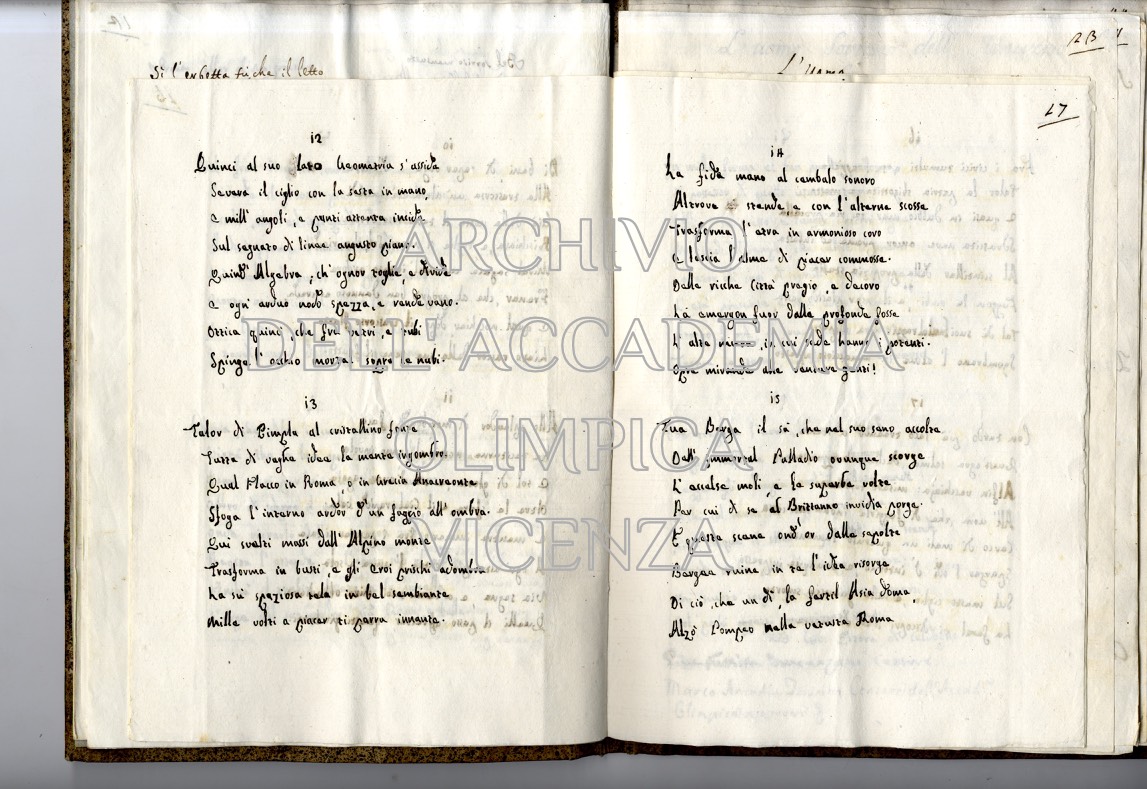 Sì l'erbetta fu che il letto
12
Quinci al suo lato Geometria s'asside
Severa il ciglio con la sesta in mano,
e mill' angoli, e punti attenta incide
Sul segnato di linee angusto piano.
Quindi Algebra, ch'ognor toglie, e divide
e ogni arduo nodo spezza, e rende vano.
Ottica quinci, che fra nervi, e tubi
Spinge l'occhio sopra le nubi.
13
Talor di Pimpla al cristallino fonte
Tutta di vaghe idee la mente ingombro.
Qual Flacco in Roma, o in Grecia Anacreonte
Sfoga l'interno ardor d'un faggio all'ombra.
Qui svelti massi dall'Alpino monte
Trasforma in busti, e gli eroi prischi adombra
La su spaziosa tela in bel sembiante
Mille volti a piacer ti parra innante.
L'Uomo
28
27
14
La fida mano al cembalo sonoro
Altrove stende, e con l'alterne scosse
Trasforma l'aria in armonioso coro
e lascia l'alme di piacer commosse.
Delle ricche Città pregio, e decoro
Là emergon fuor dalle profonde fosse
L'alte in cui sede hanno i potenti.
Opre mirande alle venture genti!
15
Tua Berga il sà, che nel suo seno accolte
Dell'immortal Palladio ovunque scorge
L'eccelse moli, e le superbe volte
Per cui di se al Brittanno invidia porge.
E queste scene ond'or dalle sepolte
Bergee ruine in te l'idea risorge
Di ciò, che un dì, la fertil Asia doma
Alzò Pompeo nella vetusta Roma
ARCHIVIO
DELL'ACCADEMIA
OLIMPICA
VICENZA